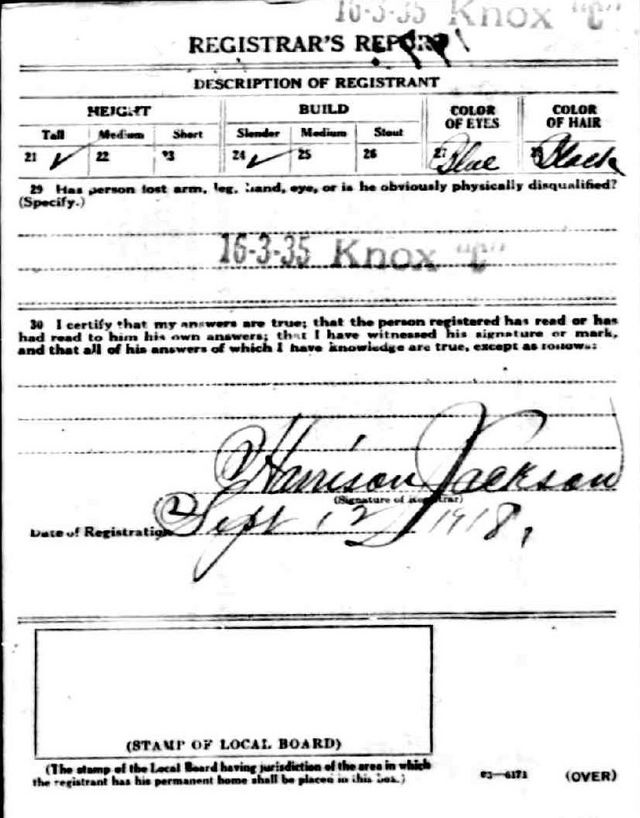 16-3-35 Knox "C"
REGISTRAR'S REPORT
DESCRIPTION OF REGISTRANT
HEIGHT BUILD COLOR OF EYES COLOR OF HAIR
Tall Medium Short Slender Medium Stout
21 ✓ 22 23 24 ✓ 25 26 27 Blue 28 Black
29 Has person lost arm, leg, hand, eye, or is he obviously physically disqualified?
(Specify.)
16-3-35 Knox "C"
30 I certify that my answers are true; that the person registered has read or has
had read to him his own answers; that I have witnessed his signature or mark,
and that all of his answers of which I have knowledge are true, except as follows:
Harrison Jackson
(Signature of Registrar)
Date of Registration Sept 12 1918,
(STAMP OF LOCAL BOARD)
(The stamp of the Local Board having jurisdiction of the area in which
the registrant has his permanent home shall be placed in this box.)
03—6171 (OVER)